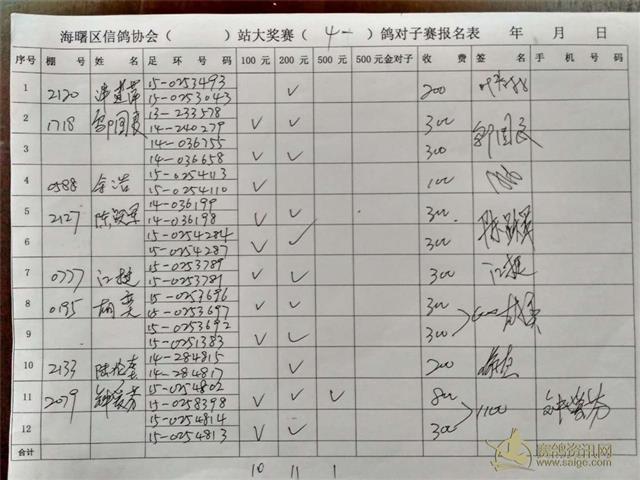 海曙区信鸽协会（ ）站大奖赛（ 4-1 ）鸽对子赛报名表 年 月 日
序号 棚号 姓名 足环号码 100元 200元 500元 500元金对子 收费 签名 手机号码
1 2120 15-0253493 ✓ 200
15-0253043
2 1718 邹国良 13-233578 ✓ ✓ 300 邹国良
14-240279
3 14-036755 ✓ ✓ 300
14-036658
4 0588 余浩 15-0254113 ✓ 100
15-0254110
5 2127 14-036199 ✓ ✓ 300
14-036198
6 15-0254284 ✓ ✓ 300
15-0254287
7 0777 江挺 15-0253789 ✓ ✓ 300 江挺
15-0253781
8 0195 胡 15-0253696 ✓ ✓ 300 600
15-0253697
9 15-0253692 ✓ ✓ 300
15-0251383
10 2133 14-284815 ✓ 200
14-284817
11 2079 15-0254802 ✓ ✓ ✓ 800 1100
15-0258398
12 15-0254814 ✓ ✓ 300
15-0254813
合计
10 11 1
赛鸽资讯网
www.saige.com